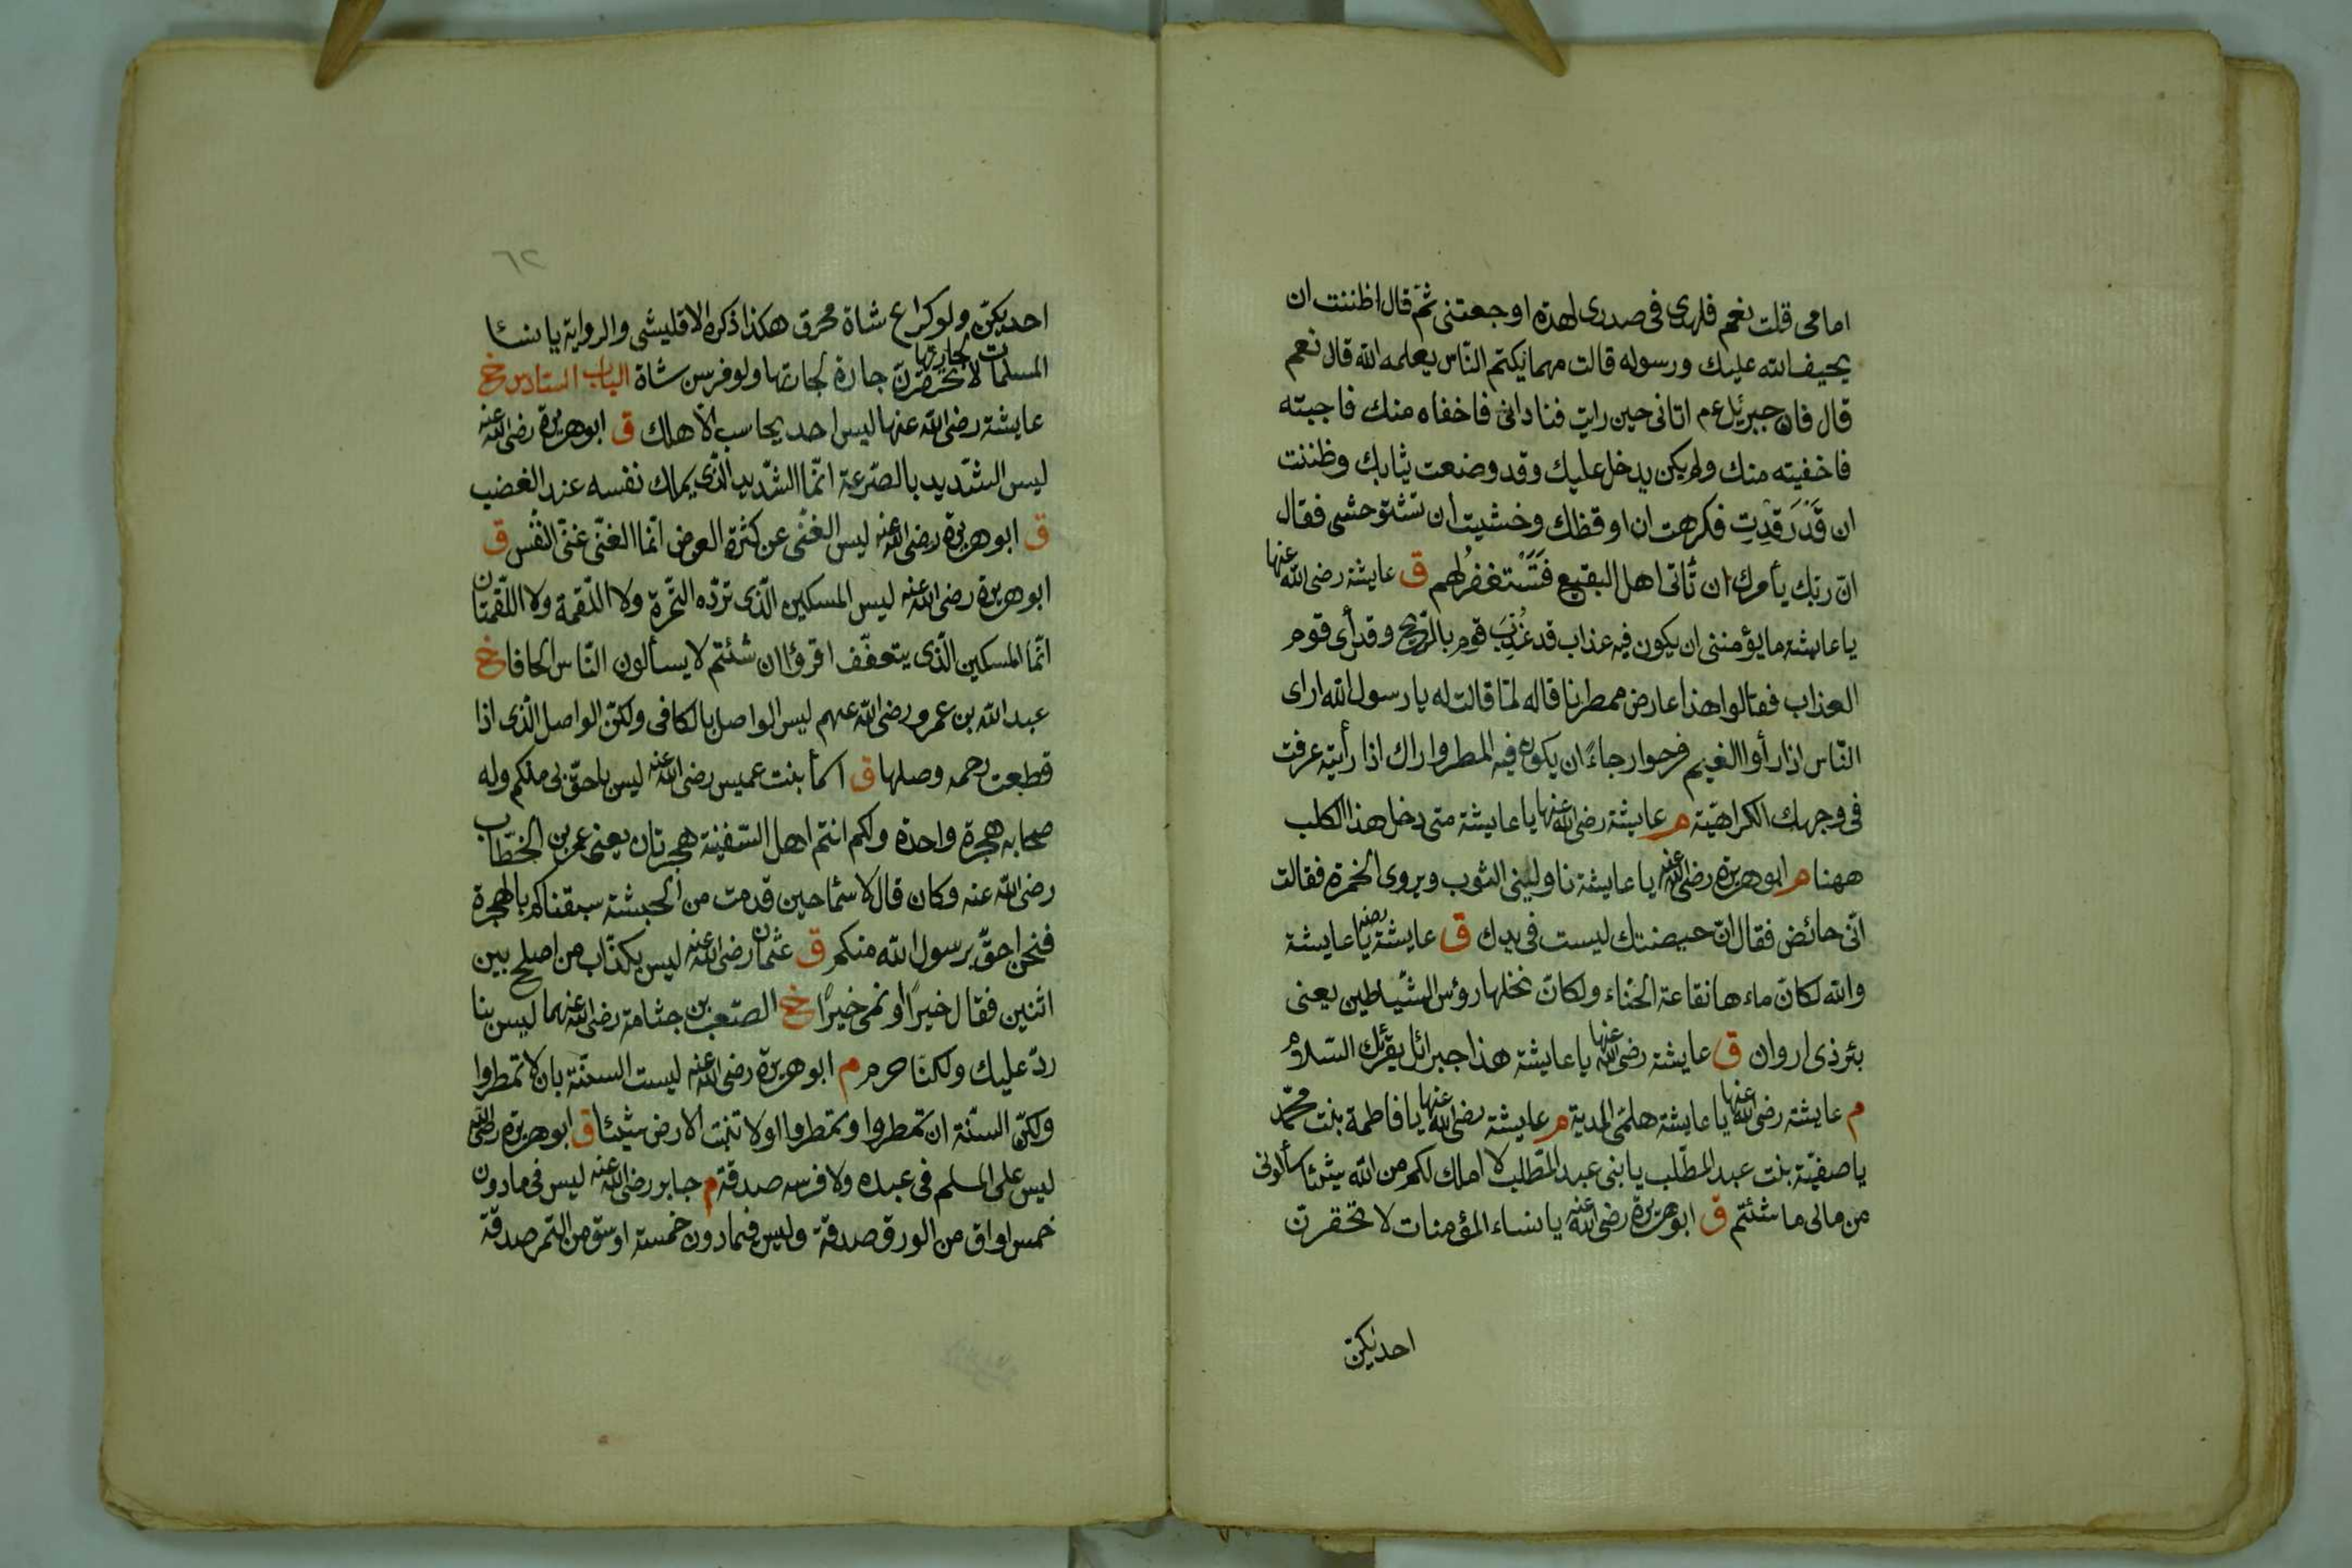 امامى قلت نعم فلهدى فى صدرى لهدة اوجعتنى ثمّ قال اظننت ان
يحيف الله عليك ورسوله قالت مهما يكتم النّاس يعلمه الله قال نعم
قال فان جبرئيل عم اتانى حين رايت فنادانى فاخفاه منك فاجبته
فاخفيته منك ولم يكن يدخل عليك وقد وضعت ثيابك وظننت
ان قَدْ رَقَدتِ فكرهت ان اوقظك وخشيت ان تستوحشى فقال
انّ ربّك يأمرك ان تأتى اهل البقيع فَتَسْتغفرُ لهم ق عايشة رضى الله عنها
يا عايشة ما يؤمننى ان يكون فيه عذاب قد عُذِّبَ قوم بالرّيح وقد رأى قوم
العذاب فقالوا هذا عارض ممطرنا قاله لمّا قالت له يا رسول الله ارى
النّاس اذا رأوا الغيم فرحوا رجاءً ان يكون فيه المطر واراك اذا رأيته عرفت
فى وجهك الكراهيّة م عايشة رضى الله عنها يا عايشة متى دخل هذا الكلب
ههنا م ابوهريرة رضى الله عنه يا عايشة ناولينى الثوب ويروى الخمرة فقالت
انّى حائض فقال انّ حيضتك ليست فى يدك ق عايشة رضه يا عايشة
والله لكانّ ماءها نقاعة الحنّاء ولكانّ نخلها رؤس الشّياطين يعنى
بئر ذى اروان ق عايشة رضى الله عنها يا عايشة هذا جبرائل يقرئك السّلام
م عايشة رضى الله عنها يا عايشة هلمّى المدية م عايشة رضى الله عنها يا فاطمة بنت محمّد
يا صفيّة بنت عبد المطّلب يا بنى عبد المطّلب لا املك لكم من الله شيئا سألونى
من مالى ما شئتم ق ابوهريرة رضى الله عنه يا نساء المؤمنات لا تحقرنّ
احديكنّ
٦٢
احديكنّ ولو كراع شاة محرق هكذا ذكره الاقليشى والرواية يا نساء
المسلمات لا تحقرنّ جارة لجارتها ولو فرسن شاة الباب السّادس خ
عايشة رضى الله عنها ليس احد يحاسب الّا هلك ق ابوهريرة رضى الله عنه
ليس الشّديد بالصّرعة انّما الشّديد الّذى يملك نفسه عند الغضب
ق ابوهريرة رضى الله عنه ليس الغنى عن كثرة العرض انّما الغنّى غنىّ النّفس ق
ابوهريرة رضى الله عنه ليس المسكين الّذى تردّه التّمرة ولا اللّقمة ولا اللّقمتان
انّما المسكين الّذى يتعفّف اقرؤا ان شئتم لا يسألون النّاس الحافا خ
عبد الله بن عمرو رضى الله عنهم ليس الواصل بالكافى ولكنّ الواصل الّذى اذا
قطعت رحمه وصلها ق اسماء بنت عميس رضى الله عنه ليس باحقّ بى منكم وله
صحابه هجرة واحدة ولكم انتم اهل السّفينة هجرتان يعنى عمر بن الخطّاب
رضى الله عنه وكان قال لاسماء حين قدمت من الحبشة سبقناكم بالهجرة
فنحن احقّ برسول الله منكم ق عثمان رضى الله عنه ليس بكذّاب من اصلح بين
اثنين فقال خيرًا او نمى خيرًا خ الصّعب بن جثامة رضى الله عنهما ليس بنا
ردّ عليك ولكنّا حرم م ابوهريرة رضى الله عنه ليست السنّة بان لا تمطروا
ولكنّ السنّة ان تمطروا وتمطروا ولا تنبت الارض شيئا ق ابوهريرة رضى الله
ليس على المسلم فى عبده ولا فرسه صدقة م جابر رضى الله عنه ليس فى ما دون
خمس اواق من الورق صدقة وليس فيما دون خمسة اوسق من التّمر صدقة